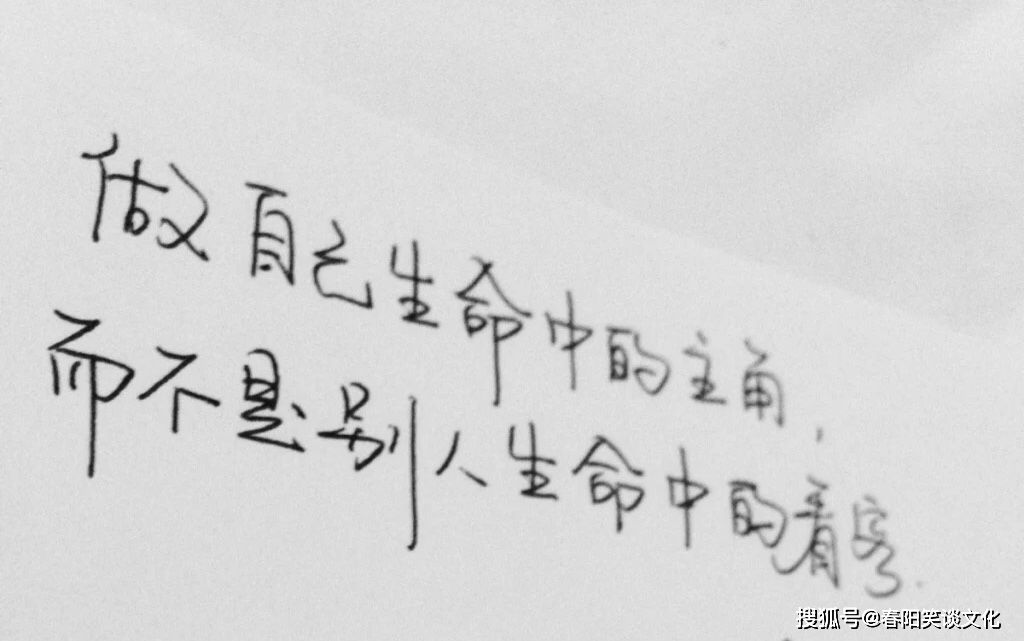 做自己生命中的主角，
而不是别人生命中的看客.
搜狐号@春阳笑谈文化